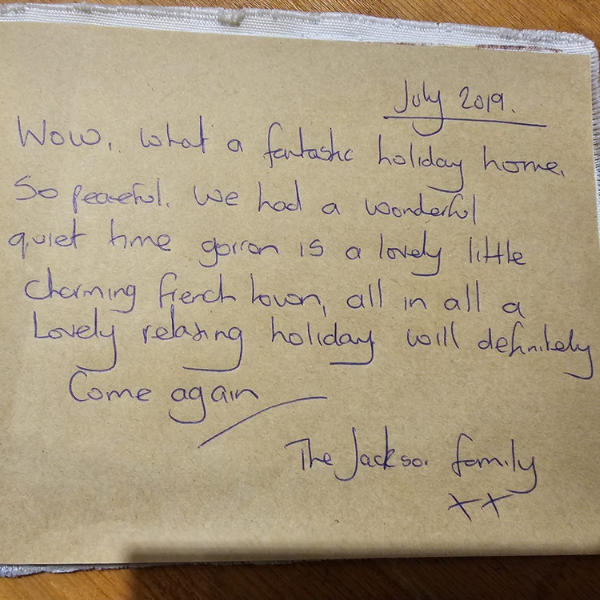 July 2019.
Wow, what a fantastic holiday home.
So peaceful. We had a wonderful
quiet time gorron is a lovely little
charming french town, all in all a
Lovely relaxing holiday will definitely
Come again
The Jackson family
xx